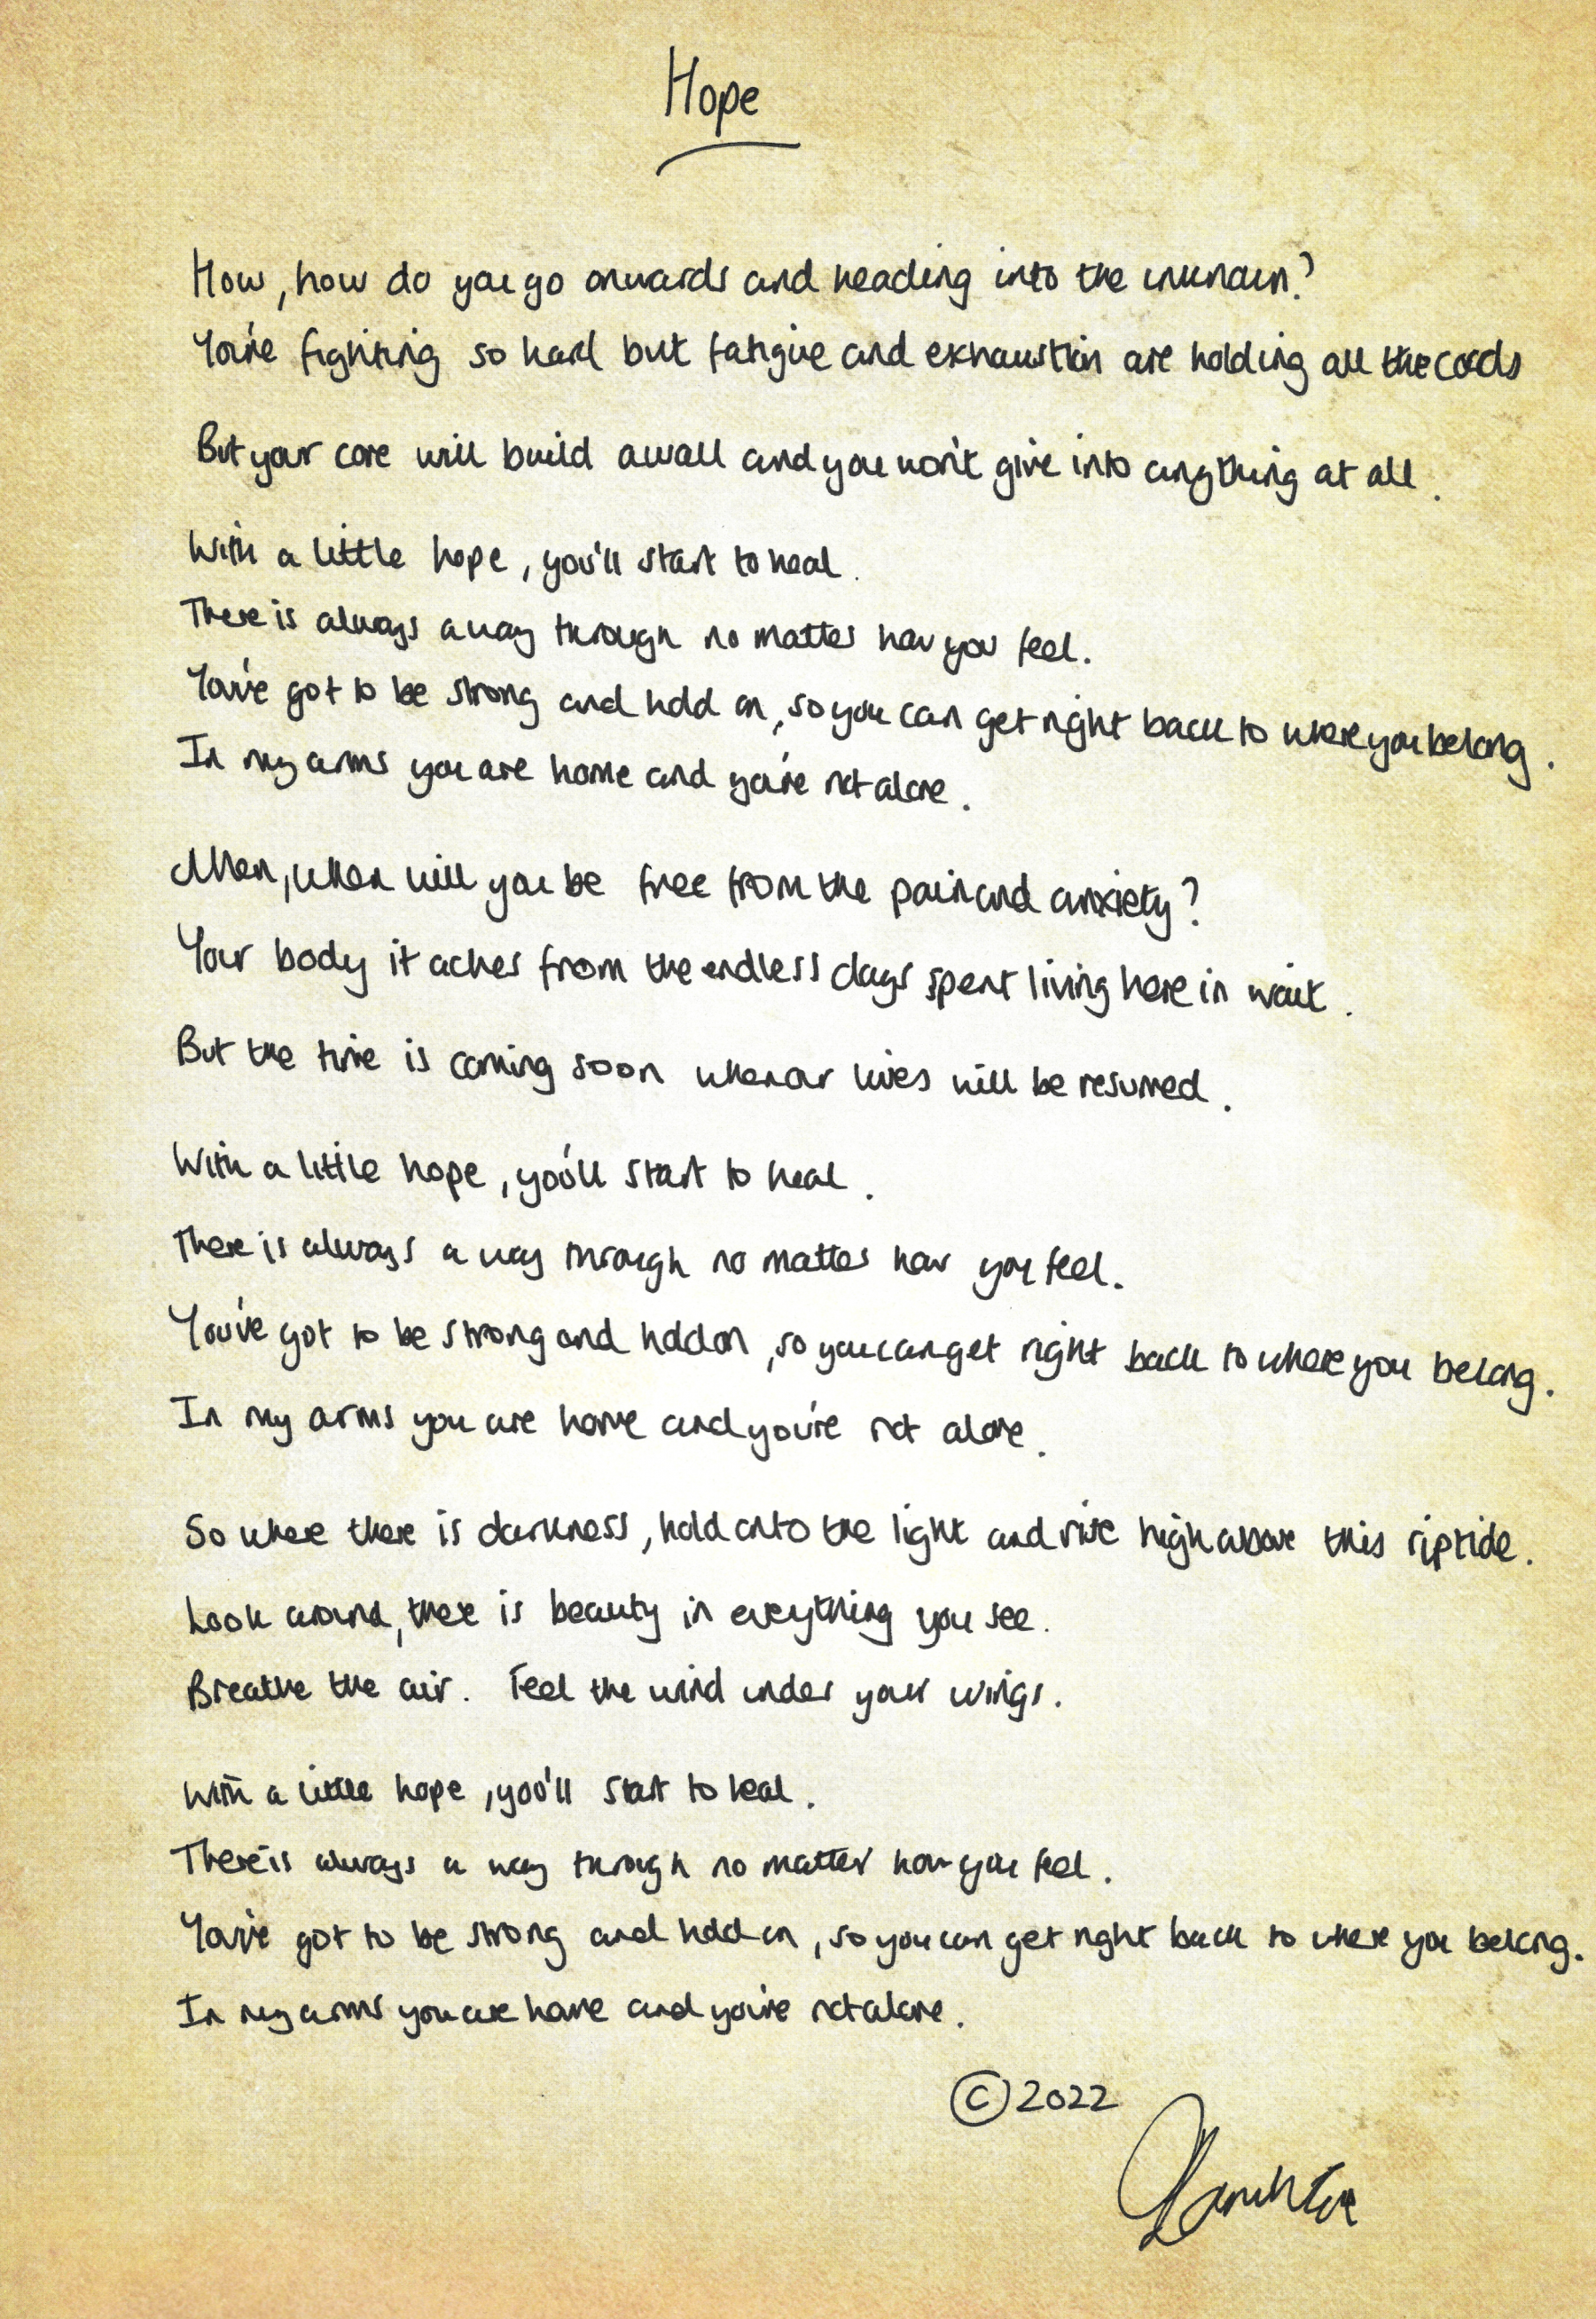 Hope
How, how do you go onwards and heading into the unknown?
You're fighting so hard but fatigue and exhaustion are holding all the cards
But your core will build a wall and you won't give into anything at all.
With a little hope, you'll start to heal.
There is always a way through no matter how you feel.
You've got to be strong and hold on, so you can get right back to where you belong.
In my arms you are home and you're not alone.
When, when will you be free from the pain and anxiety?
Your body it aches from the endless days spent living here in wait.
But the time is coming soon when our lives will be resumed.
With a little hope, you'll start to heal.
There is always a way through no matter how you feel.
You've got to be strong and hold on, so you can get right back to where you belong.
In my arms you are home and you're not alone.
So where there is darkness, hold onto the light and rise high above this riptide.
Look around, there is beauty in everything you see.
Breathe the air. Feel the wind under your wings.
With a little hope, you'll start to heal.
There is always a way through no matter how you feel.
You've got to be strong and hold on, so you can get right back to where you belong.
In my arms you are home and you're not alone.
©2022